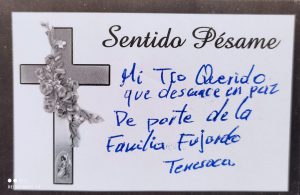 Sentido Pésame
Mi Tío Querido
que descance en paz
De porte de la
Familia Fajardo
Tenesaca